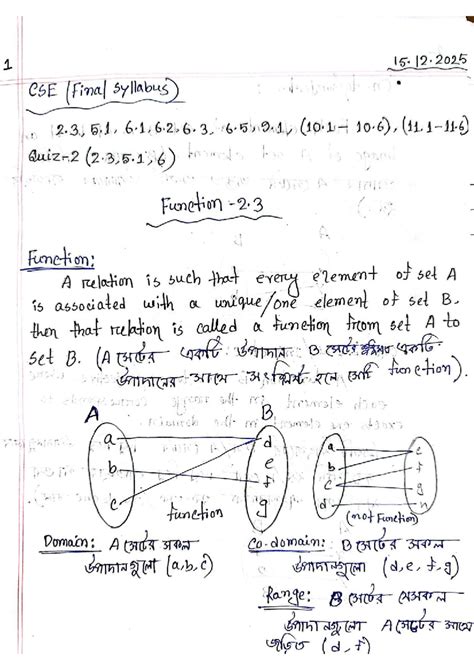 1
15.12.2025
CSE (Final Syllabus)
2.3, 5.1, 6.1, 6.2, 6.3, 6.5, 9.1, (10.1 - 10.6), (11.1-11.6)
Quiz-2 (2.3, 5.1, 6)
Function - 2.3
Function:
A relation is such that every element of set A
is associated with a unique/one element of set B,
then that relation is called a function from set A to
set B. (A সেটের একটি উপাদান B সেটের একটি
উপাদানের সাথে সংশ্লিষ্ট হলে function).
A B
a d
b e
c f
g
function
a e
b f
c g
d h
(not Function)
Domain: A সেটের সকল
উপাদানগুলো (a, b, c)
Co-domain: B সেটের সকল
উপাদানগুলো (d, e, f, g)
Range: B সেটের যেসকল
উপাদানগুলো A সেটের সাথে
জড়িত (d, f)